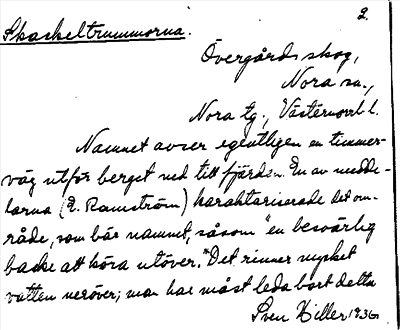 2.
Skackeltrummorna.
Övergårds skog,
Nora sn.,
Nora tg., Västernorrl. l.
Namnet avser egentligen en timmer-
väg utför berget ned till fjärden. En av medde-
larna (E. Ramström) karaktäriserade det om-
råde, som bär namnet, såsom "en besvärlig
backe att köra utöver." Det rinner mycket
vatten neröver; man har måst leda bort detta
Sven Hiller 1936